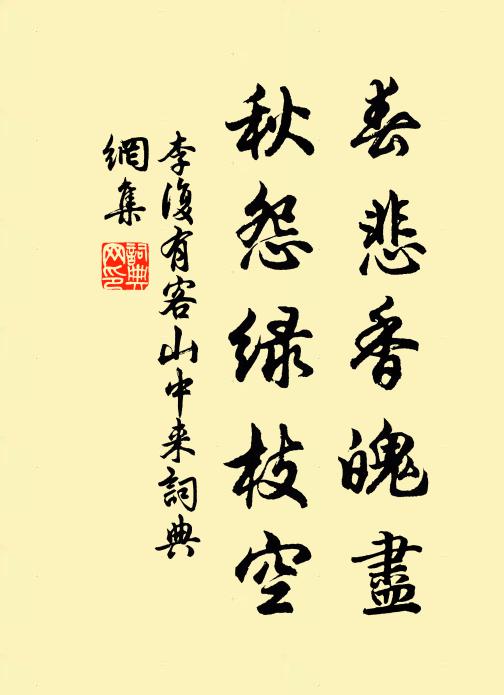 春悲香魄盡
秋怨緑枝空
李復有客山中来詞典
網集
詞典
网印